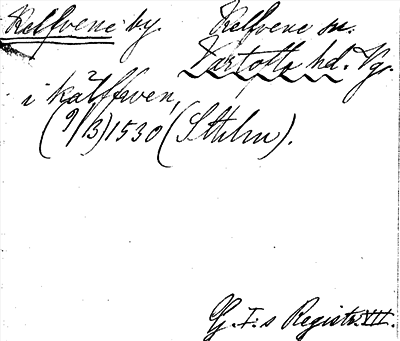 Kelfvene by. Kelfvene sn.
Vartofta hd. Vg.
i kálffwen,
(9/3) 1530 (Sthlm).
G. I:s Registr. VII.